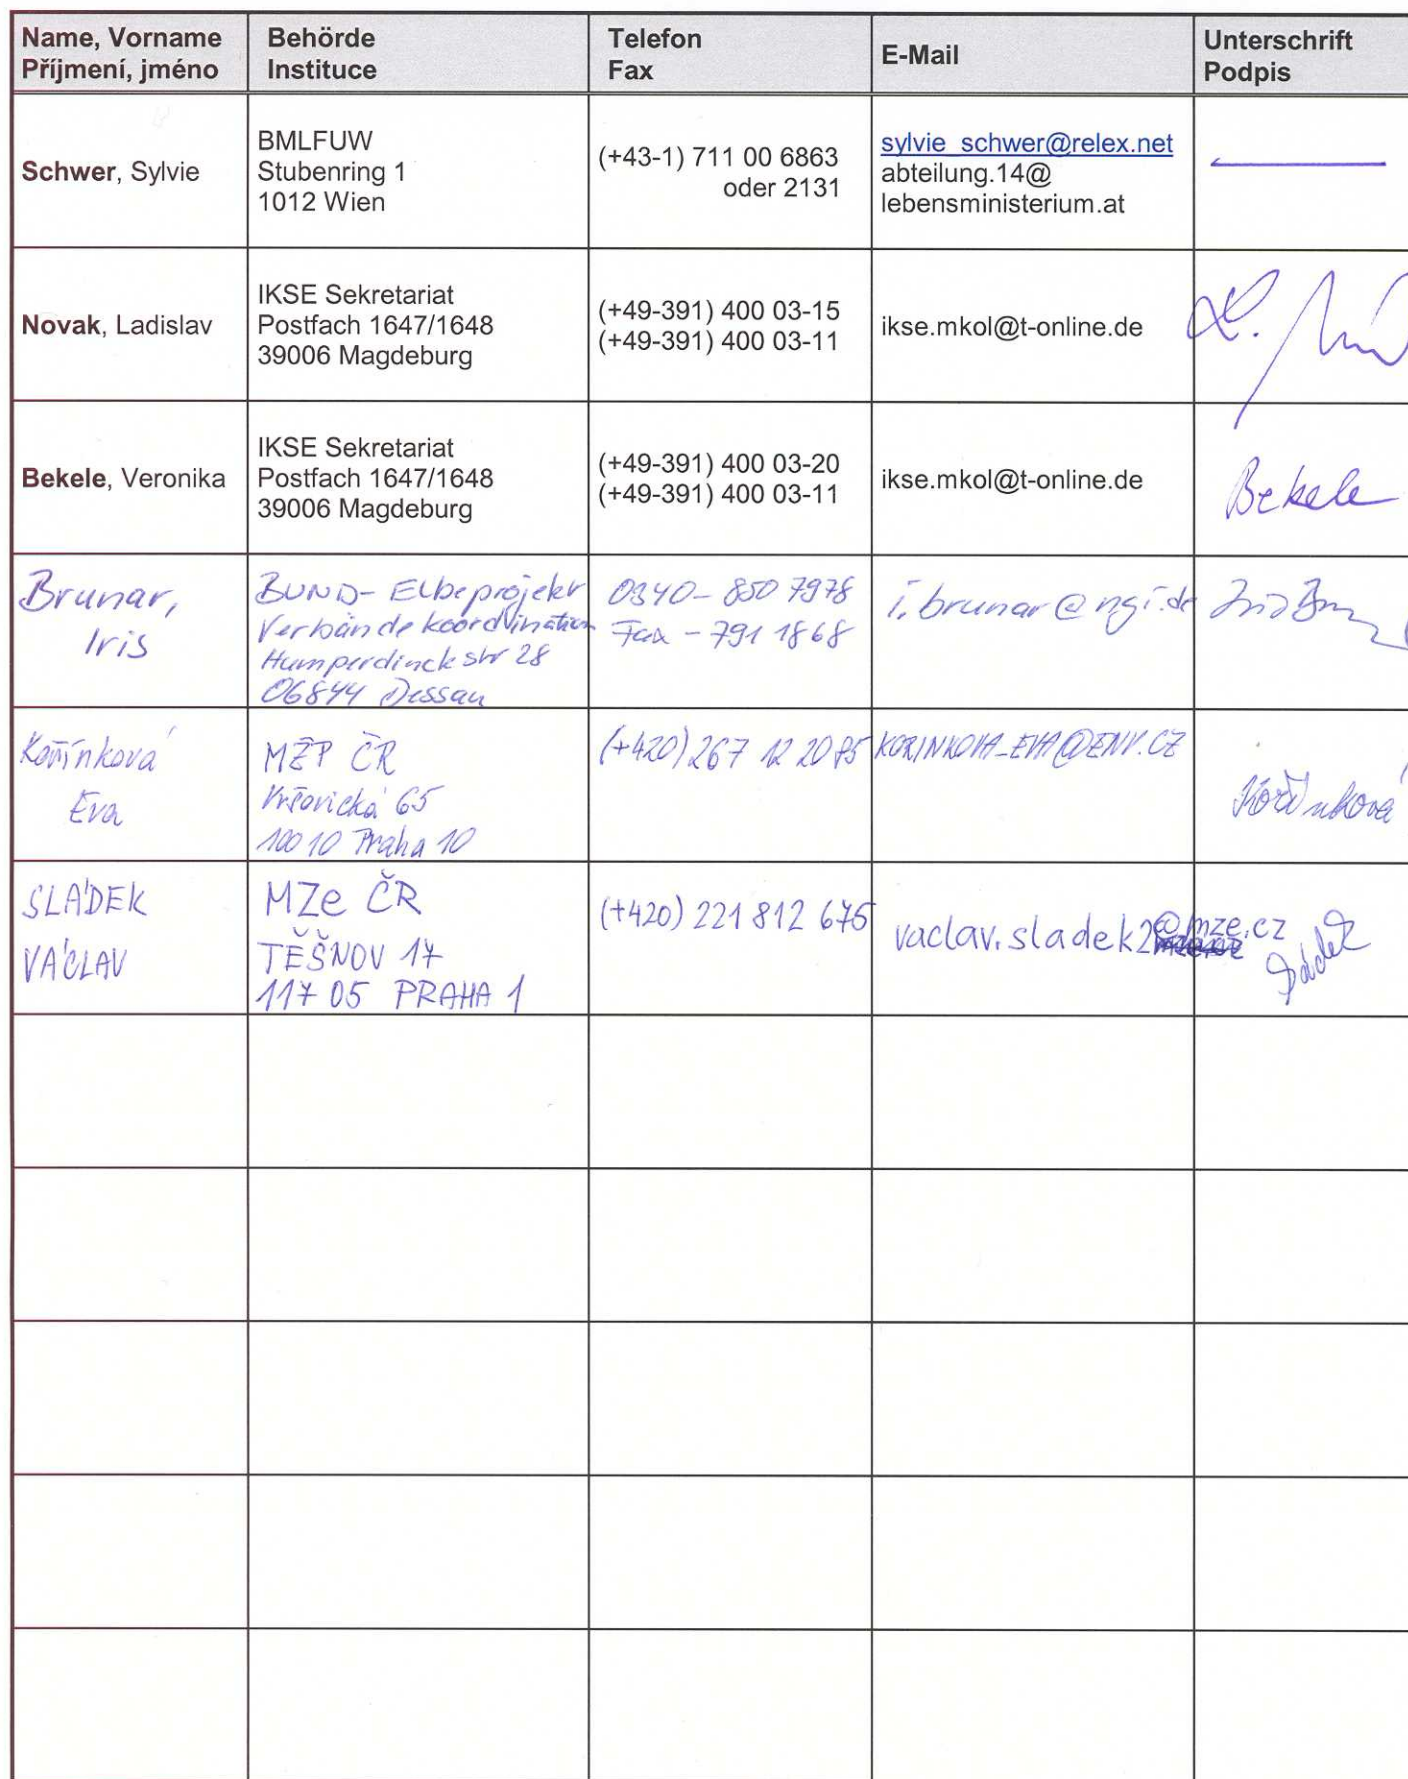 Name, Vorname
Příjmení, jméno
Behörde
Instituce
Telefon
Fax
E-Mail
Unterschrift
Podpis
Schwer, Sylvie
BMLFUW
Stubenring 1
1012 Wien
(+43-1) 711 00 6863
oder 2131
sylvie_schwer@relex.net
abteilung.14@
lebensministerium.at
Novak, Ladislav
IKSE Sekretariat
Postfach 1647/1648
39006 Magdeburg
(+49-391) 400 03-15
(+49-391) 400 03-11
ikse.mkol@t-online.de
Bekele, Veronika
IKSE Sekretariat
Postfach 1647/1648
39006 Magdeburg
(+49-391) 400 03-20
(+49-391) 400 03-11
ikse.mkol@t-online.de
Bekele
Brunar,
Iris
BUND-Elbeprojekt
Verbändekoordination
Humperdinckstr 28
06844 Dessau
0340-850 7978
Fax - 791 1868
i.brunar@ngi.de
Kořínková
Eva
MŽP ČR
Vršovická 65
100 10 Praha 10
(+420) 267 12 2085
KORINKOVA_EVA@ENV.CZ
Kořínková
SLÁDEK
VÁCLAV
MZe ČR
TĚŠNOV 17
117 05 PRAHA 1
(+420) 221 812 675
vaclav.sladek2@mze.cz
Sládek